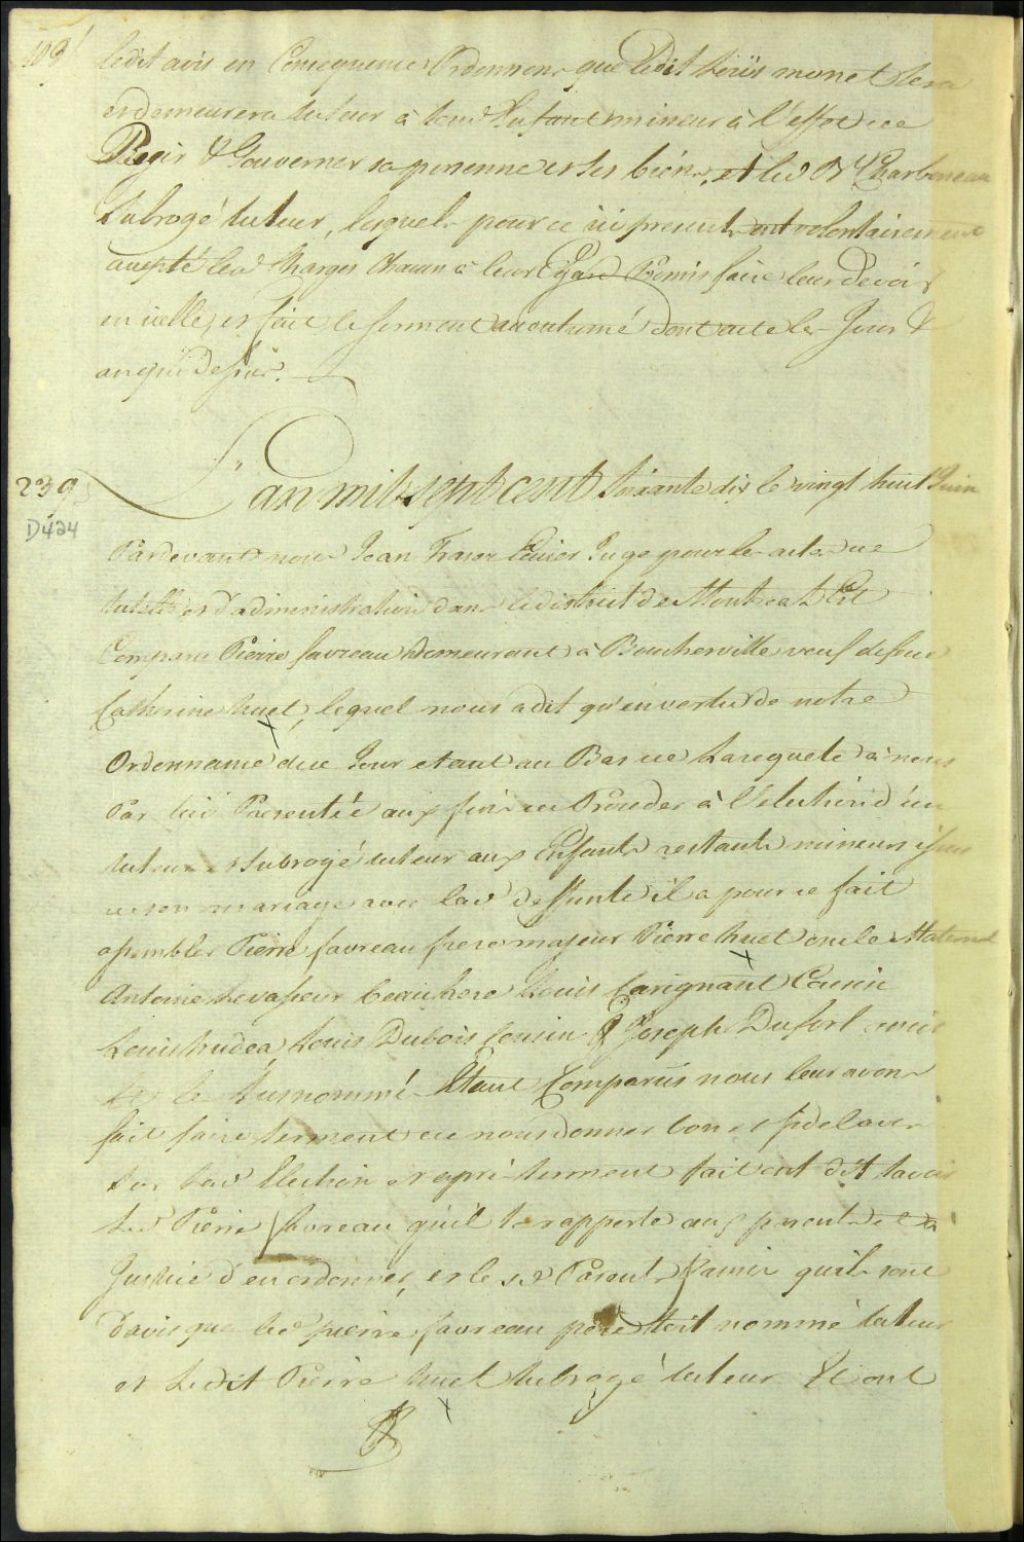 103
ledit avis en Consequence Ordonnons que ledit Louis monet sera
et demeurera tuteur à lad Enfant mineur à l'effet de
Regir & Gouverner sa personne et ses biens, et led Bte Charboneau
Subrogé tuteur, lesquels pour ce ici presents ont volontairement
accepté lesd Charges Chacun à leur Egard Promis faire leur Devoir
en icelle, et fait le serment accoutumé Dont acte les Jour &
an que Dessus.
239
L'an mil sept cent Soixante dix le vingt huit Juin
D424
Pardevant nous Jean Fraser Ecuier Juge pour les actes de
tutelle et d'administration dans le district de Montreal Est
Comparu Pierre favreau Demeurant à Boucherville veuf de feue
Catherine huet, lequel nous a dit qu'en vertu de notre
Ordonnance de ce Jour etant au Bas de La requete à nous
Par lui Presentée aux fins de Proceder à l'election d'un
tuteur et Subrogé tuteur aux Enfants restants mineurs issus
de son mariage avec lad Deffunte il a pour ce fait
assembler Pierre favreau frere majeur Pierre huet oncle Maternel
Antoine Levasseur beaufrere Louis Carignant Cousin
Louis trudea, Louis Dubois Cousin & Joseph Dufort amis
Les Susnommé Etant Comparus nous leur avons
fait faire serment de nous donner bon et fidel avis
Sur lad Election et après serment fait ont dit savoir
Led Pierre favreau qu'il se rapporte aux parents et à
Justice d'en ordonner, et les sd Parents & amis qu'ils sont
d'avis que led pierre favreau pere soit nommé tuteur
et Ledit Pierre huet Subrogé tuteur Et ont